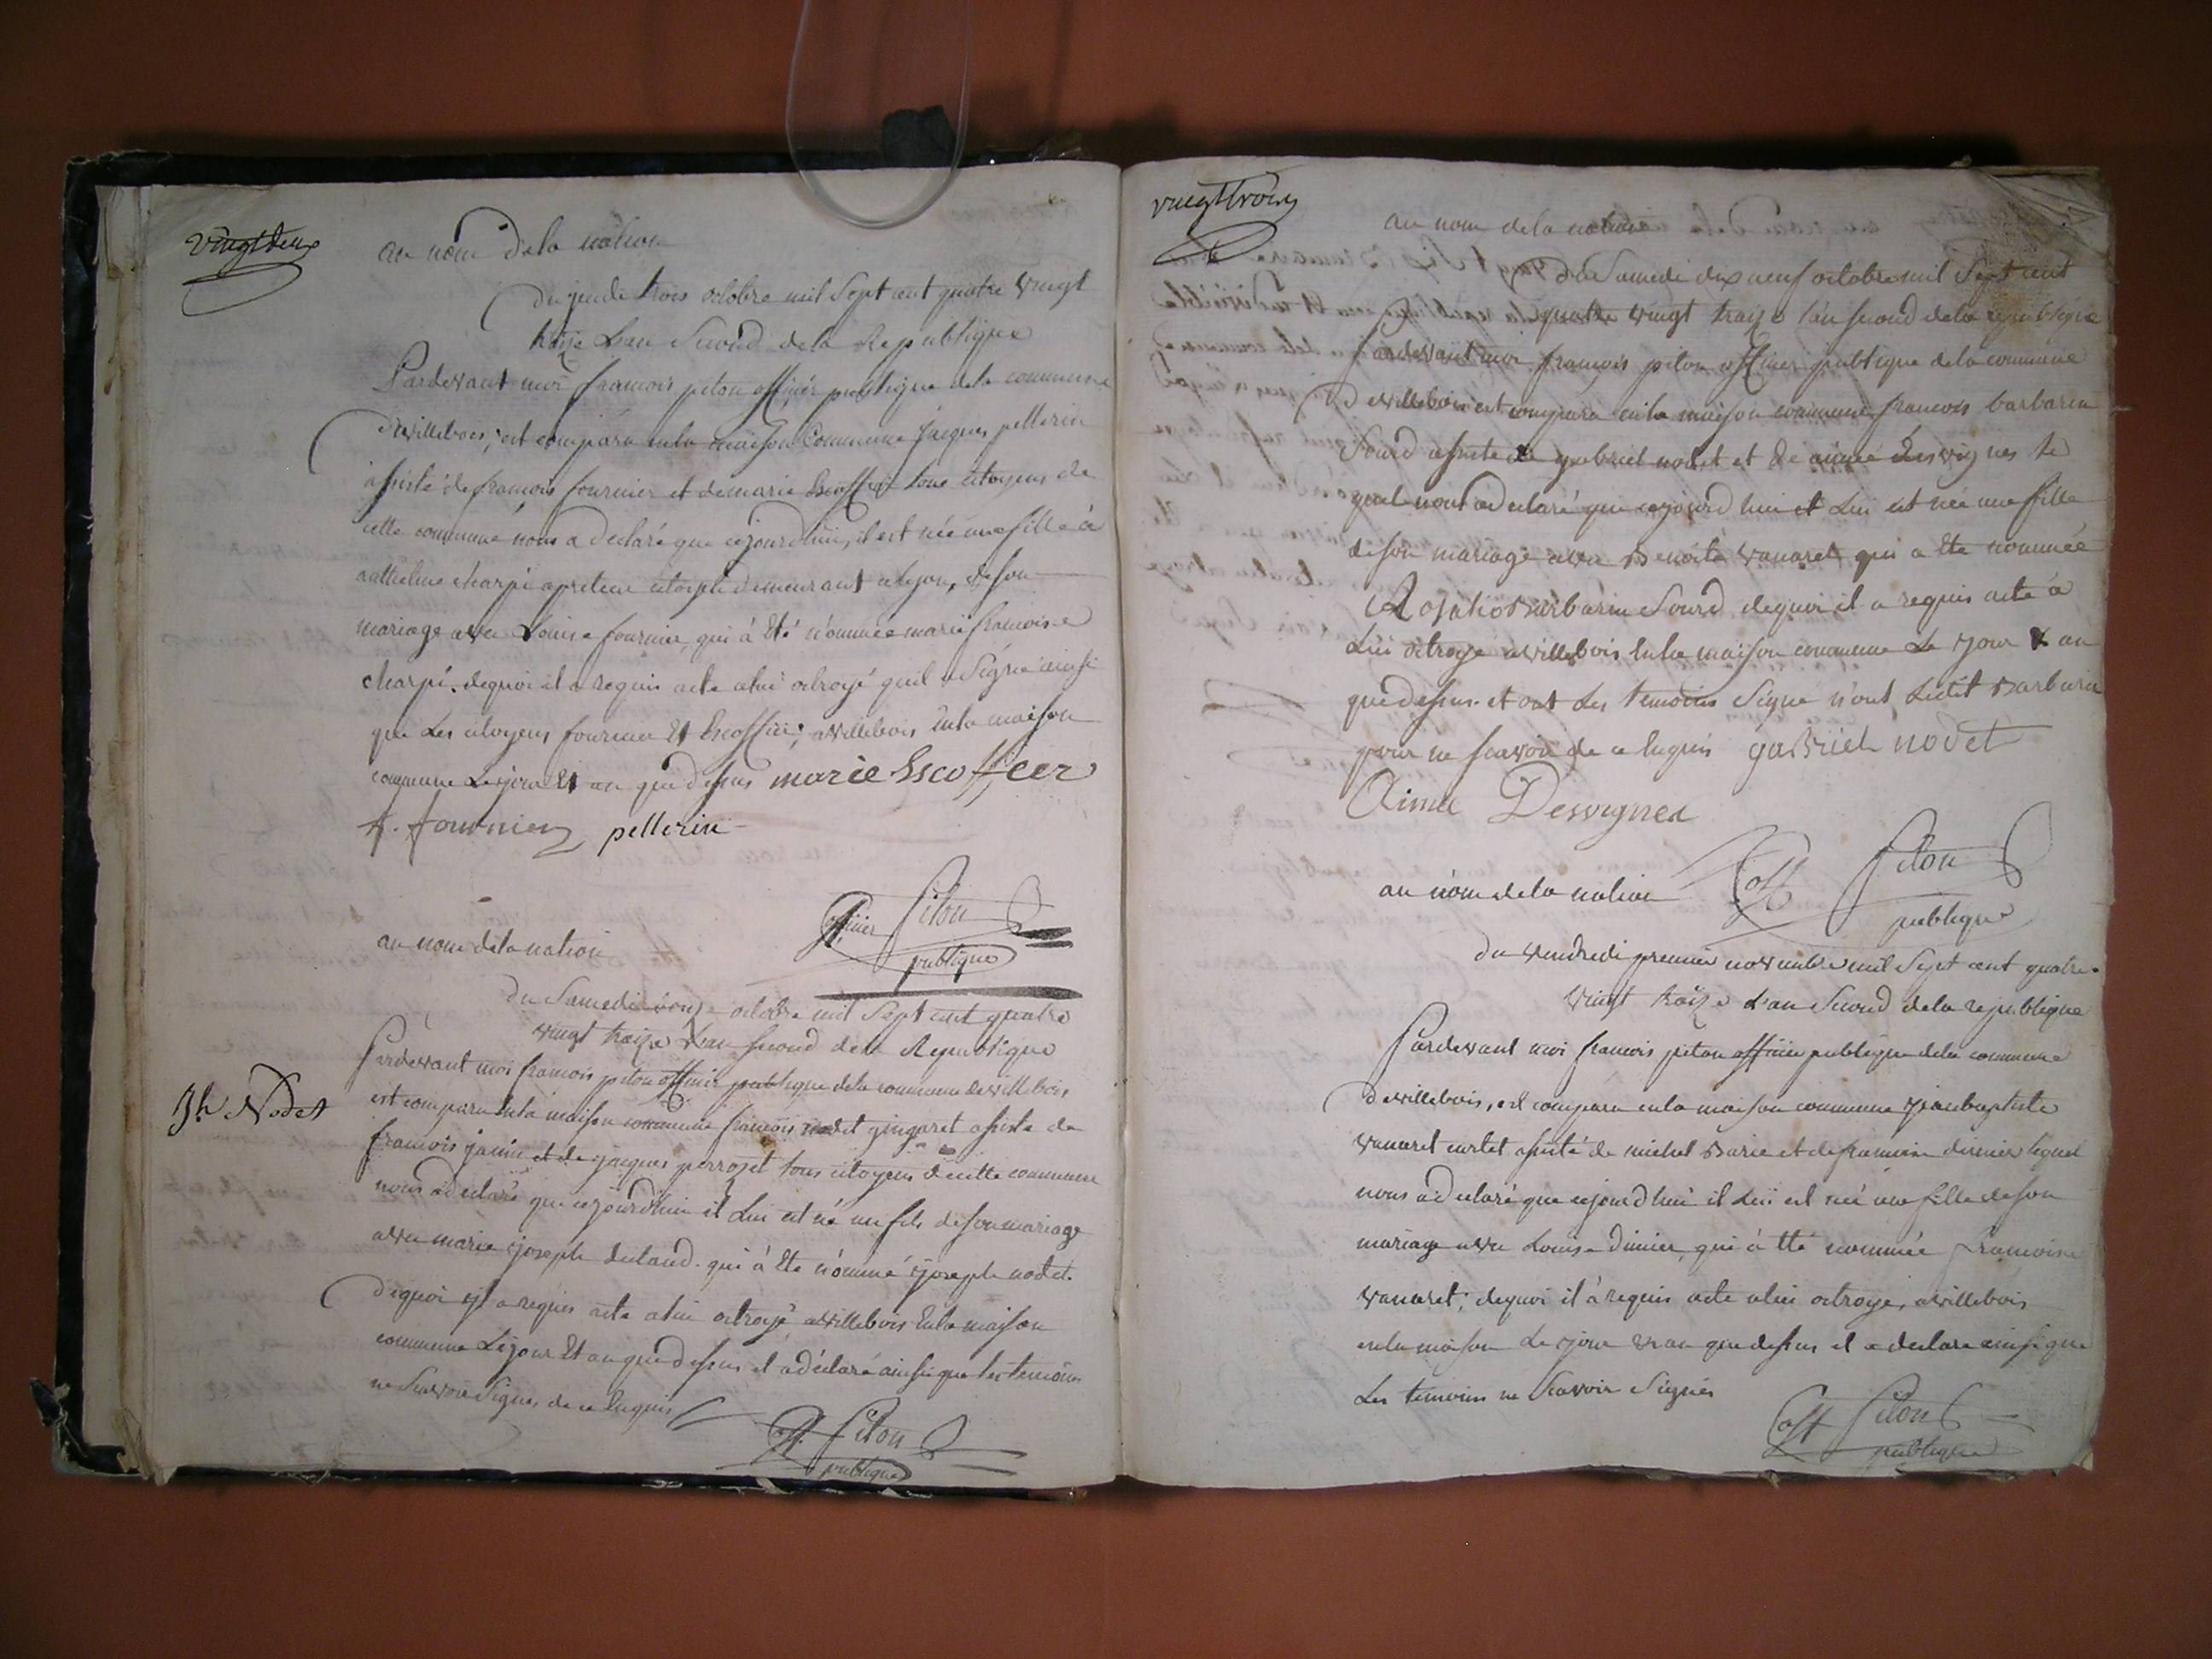 vingt deux
au nom dela nation
du jeudi trois octobre mil Sept cent quatre vingt
traize L'an Second dela Republique
Pardevant moi francois piton officier publique dela commune
devillebois, est comparu enla maison Commune Jacques pellerin
assisté de francois fournier et demarie Escoffier tous citoyens de
cette commune nous a declaré que cejourdhui, il est née une fille à
anthelme charpi citoyen demeurant alyon, deson
mariage avec Louise fournier, qui à Eté nommée marie francoise
charpi. dequoi il a requis acte alui octroyé quil a Signé ainsi
que Les citoyens fournier Et Escoffier; avillebois Enla maison
commune Lejour Et an que dessus marie Escoffier
f. fournier pellerin
officier piton
publique
au nom dela nation
du Samedi octobre mil Sept cent quatre
vingt traize L'an Second dela Republique
Jh Nodet
Pardevant moi francois piton officier publique dela commune devillebois
est comparu Enla maison commune francois nodet gingaret assisté de
francois janin et de jacques perrozet tous citoyens decette commune
nous a declaré que cejourdhui il Lui est né un fils deson mariage
avec marie joseph qui à Eté nommé joseph nodet.
dequoi il a requis acte alui octroyé avillebois Enla maison
commune Lejour Et an que dessus il a déclaré ainsi que les temoins
ne Scavoir Signer de ce Enquis
off. piton
publique
vingt trois
au nom dela nation
du Samedi dix neuf octobre mil Sept cent
quatre vingt traize l'an second dela republique
pardevant moi françois piton officier publique dela commune
devillebois est comparu enla maison commune francois barbarin
Sourd assisté de gabriel nodet et de aimé desvignes le
quel nous a declaré que cejourd hui et Lui est née une fille
deson mariage avec Benoite vanaret qui a été nommée
Barbarin Sourd dequoi il a requis acte à
Lui octroyé avillebois Enla maison commune Le jour & an
que dessus. et ont Les temoins Signé n'ont Ledit Barbarin
pour ne scavoir de ce Enquis gabriel nodet
Aimé Desvignes
off piton
publique
au nom dela nation
du vendredi premier novembre mil Sept cent quatre
vingt traize L'an Second dela republique
Pardevant moi francois piton officier publique dela commune
devillebois, est comparu enla maison commune jean baptiste
vanaret assisté de michel Barie et de francoise dimier lequel
nous a declaré que cejourd hui il Lui est née une fille deson
mariage avec Louise Dimier, qui à été nommée francoise
vanaret; dequoi il à requis acte alui octroyé, avillebois
enla maison Le jour & an que dessus il a declaré ainsi que
Les temoins ne Scavoir Signer
off piton
publique